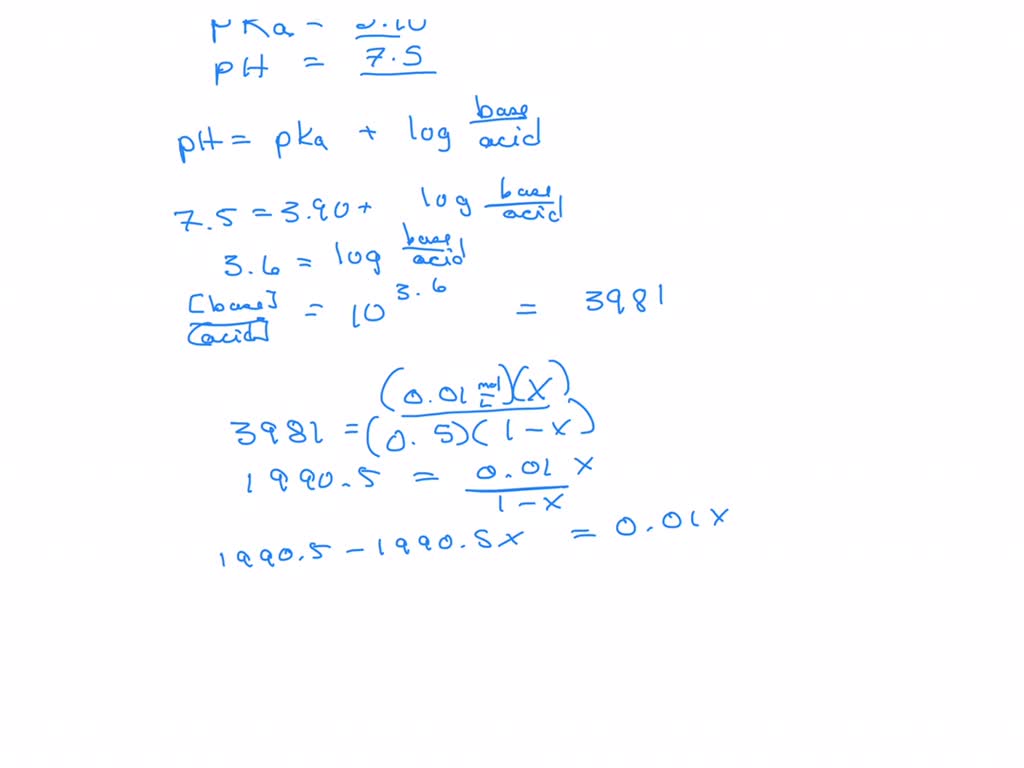 pKa =
pH = 7.5
pH = pKa + log base/acid
7.5 = 3.90 + log base/acid
3.6 = log base/acid
[base]/[acid] = 10^3.6 = 3981
3981 = (0.01 mol/L)(x)/(0.5)(1-x)
1990.5 = 0.01x/1-x
1990.5 - 1990.5x = 0.01x